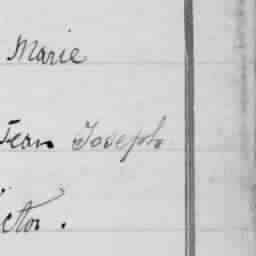 Marie
Jean Joseph
ictor .